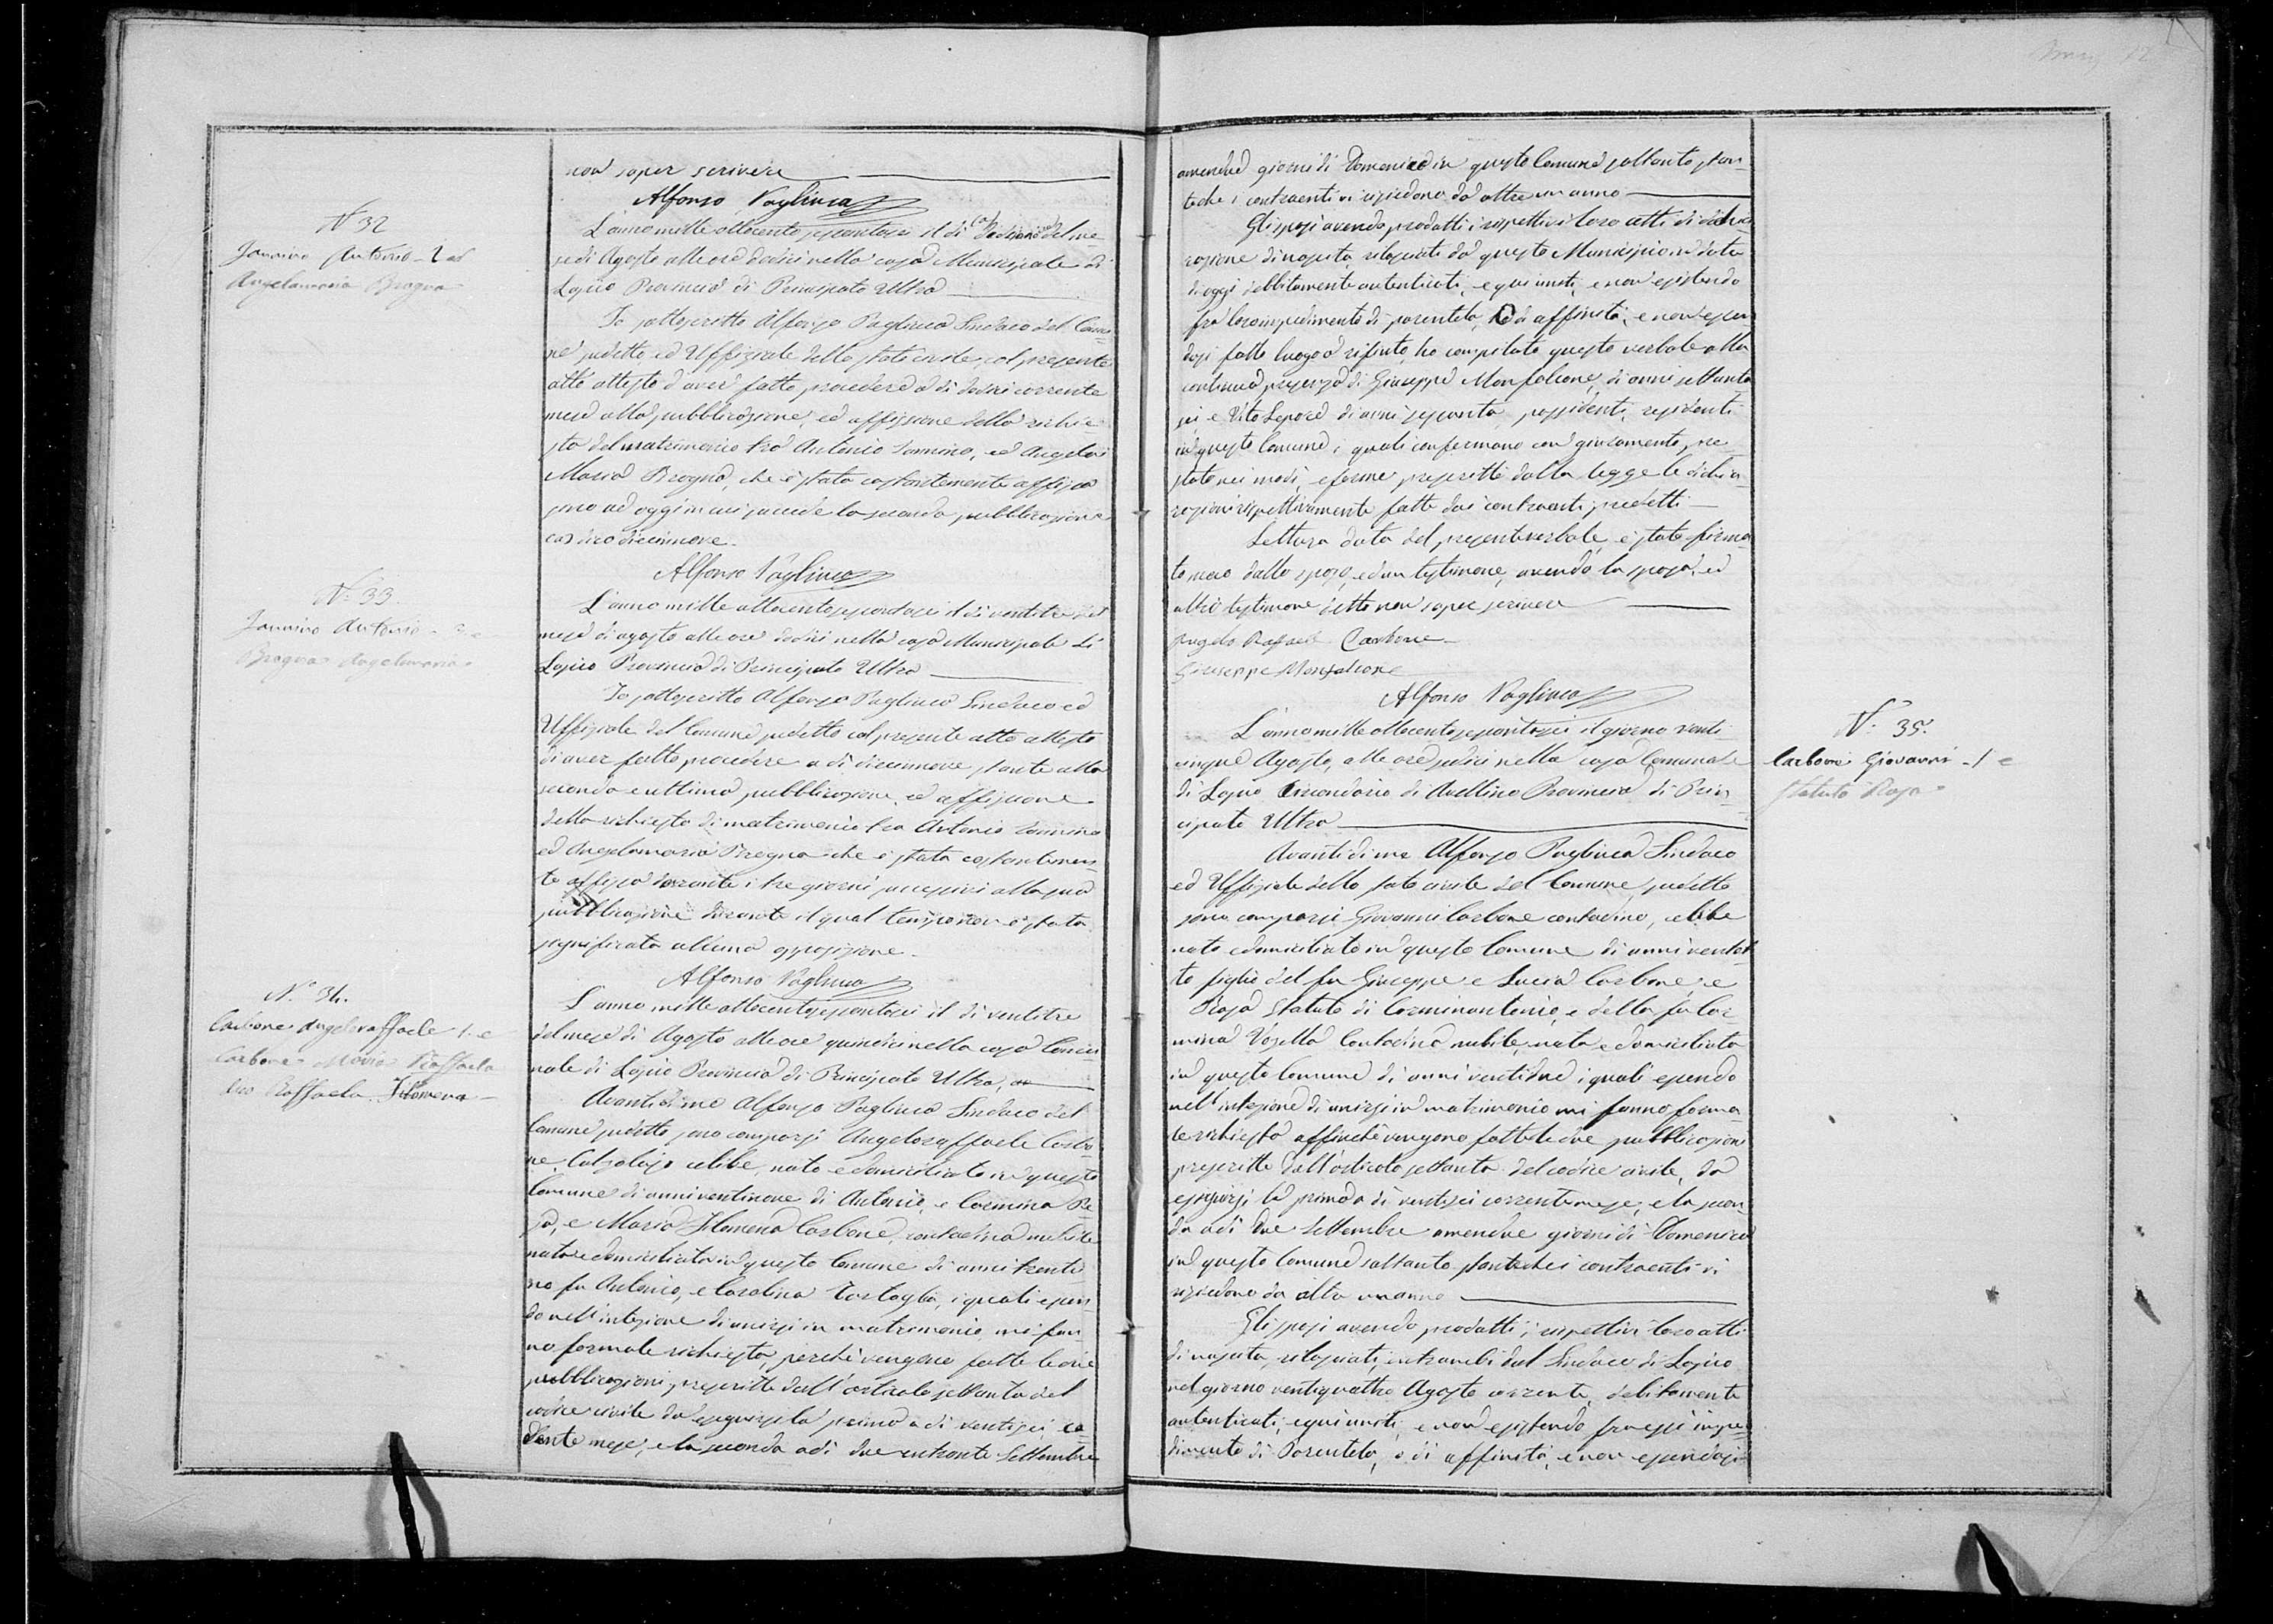 N° 32
Iannino Antonio - 2 a
Angelamaria Brogna
N° 33.
Iannino Antonio
Brogna Angelamaria
N.° 34.
Carbone Angeloraffaele 1. e
Carbone Maria Raffaela
Raffaela Filomena
non saper scrivere
Alfonso Pagliuca
L'anno mille ottocento sessantasei il dì del me-
se di Agosto alle ore dodici nella casa Municipale di
Lapio Provincia di Principato Ultra
Io sottoscritto Alfonso Pagliuca Sindaco del Comu-
ne sudetto ed Uffiziale dello stato civile, col presente
atto attesto d'aver fatto procedere a dì dodici corrente
mese alla pubblicazione, ed affissione della richie-
sta del matrimonio tra Antonio Iannino, ed Angela
Maria Brogna, che è stata costantemente affissa
sino ad oggi in cui succede la seconda pubblicazione
diecinnove.
Alfonso Pagliuca
L'anno mille ottocento sessantasei il dì ventitre del
mese di agosto alle ore dodici nella casa Municipale di
Lapio Provincia di Principato Ultra
Io sottoscritto Alfonso Pagliuca Sindaco ed
Uffiziale del Comune sudetto col presente atto attesto
di aver fatto procedere a dì diecinnove stante alla
seconda e ultima pubblicazione, ed affissione
della richiesta di matrimonio tra Antonio Iannino
ed Angelamaria Brogna che è stata costantemen-
te affissa durante i tre giorni successivi alla sua
pubblicazione durante il qual tempo non è stata
significata alcuna opposizione.
Alfonso Pagliuca
L'anno mille ottocento sessantasei il dì ventitre
del mese di Agosto alle ore quindici nella casa Comu-
nale di Lapio Provincia di Principato Ultra,
Avanti di me Alfonso Pagliuca Sindaco del
Comune sudetto sono comparsi Angeloraffaele Carbo-
ne, Calzolajo celibe, nato e domiciliato in questo
Comune di anni ventinove di Antonio, e Carmina
e Maria Filomena Carbone, contadina nubile
nata e domiciliata in questo Comune di anni
fu Antonio, e Carolina Tartaglia, i quali essen-
do nell'intenzione di unirsi in matrimonio mi fan-
no formale richiesta, perchè vengano fatte le due
pubblicazioni, prescritte dall'articolo settanta del
codice civile da eseguirsi la prima a dì ventisei ca-
dente mese, e la seconda a dì due entrante Settembre
amendue giorni di Domenica in questo Comune soltanto stan-
teche i contraenti vi risiedono da oltre un anno
Gli sposi avendo prodotti i rispettivi loro atti di
di nascita rilasciati da questo Municipio in data
di oggi debitamente autenticati, e qui uniti, e non esistendo
fra loro impedimento di parentela, o di affinità, e non essen-
dosi fatto luogo a rifiuto, ho compilato questo verbale alla
continua presenza di Giuseppe Monfalcone, di anni settanta
sei e Vito Lepore di anni sessanta, possidenti, residenti
in questo Comune, i quali confermano con giuramento, pre-
stato nei modi, e forme prescritti dalla legge le dichia-
razioni rispettivamente fatte dai contraenti predetti
Lettura data del presente verbale, è stato firma-
to meco dallo sposo, ed un testimone, avendo la sposa, ed
altro testimone detto non saper scrivere
Angelo Raffaele Carbone
Giuseppe Monfalcone
Alfonso Pagliuca
L'anno mille ottocento sessantasei il giorno venti-
cinque Agosto, alle ore sedici nella casa Comunale
di Lapio Circondario di Avellino Provincia di Prin-
cipato Ultra
Avanti di me Alfonso Pagliuca Sindaco
ed Uffiziale dello stato civile del Comune sudetto
sono comparsi Giovanni Carbone contadino, celibe
nato e domiciliato in questo Comune di anni ventot-
to figlio del fu Giuseppe e Lucia Carbone, e
Rosa Statuto di Carminantonio, e della fu Car-
mina Vozella Contadina nubile, nata e domiciliata
in questo Comune di anni ventidue i quali essendo
nell'intenzione di unirsi in matrimonio mi fanno forma-
le richiesta affinchè vengano fatte le due pubblicazioni
prescritte dall'articolo settanta del codice civile, da
eseguirsi la prima a dì ventisei corrente mese, e la secon-
da a dì due Settembre amendue giorni di Domenica
in questo Comune soltanto stanteche i contraenti vi
risiedono da oltre un anno
Gli sposi avendo prodotti i rispettivi loro atti
di nascita, rilasciati entrambi dal Sindaco di Lapio
nel giorno ventiquattro Agosto corrente, debitamente
autenticati, e qui uniti, e non esistendo fra essi impe-
dimento di Parentela, o di affinità, e non essendosi
N.° 35.
Carbone Giovanni - 1 e
Statuto Rosa